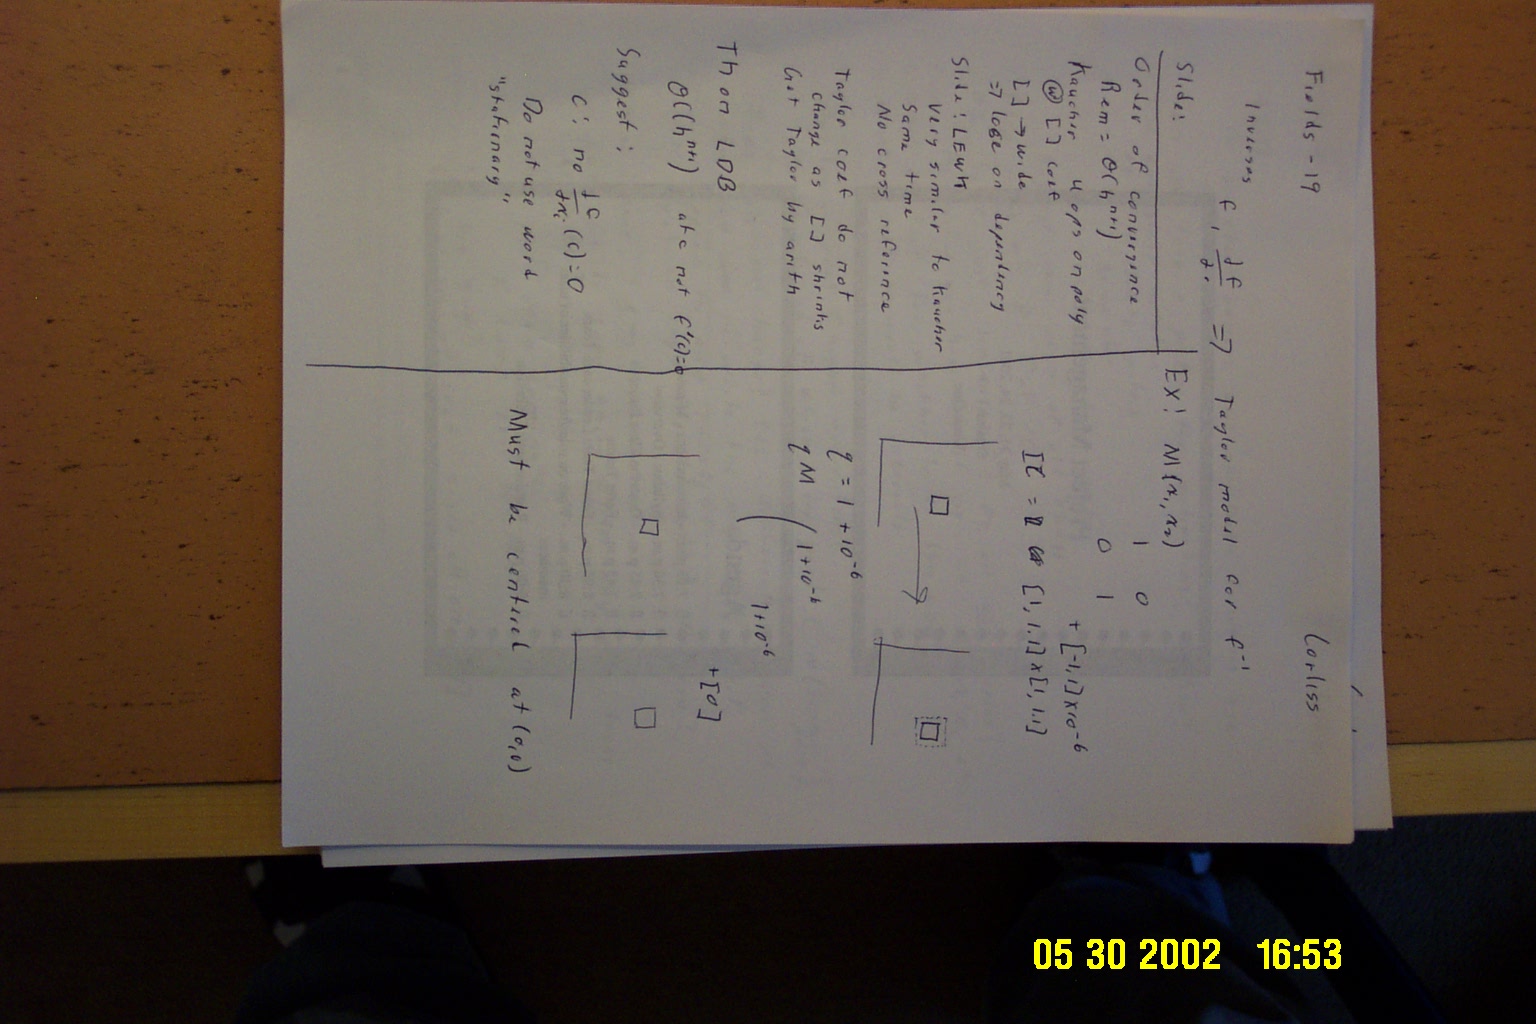 Fields - 19
Corliss
Inverses
f, ∂f/∂x ⇒ Taylor model for f⁻¹
Slide:
Order of convergence
Rem = O(h^n+1)
Kaucher 4 ops on poly
ⓦ [] coef
[] → wide
⇒ lose on dependency
Slide: LEWM
Very similar to Kaucher
Same time
No cross reference
Taylor coef do not
change as [] shrinks
Get Taylor by arith
Thm LDB
O((h^n+1) etc not f'(c)=0
Suggest:
C: no ∂f/∂xi (c)=0
Do not use word
"stationary"
Ex: M(x1, x2)
1 0
0 1
+ [-1,1]×10⁻⁶
= [1, 1.1] × [1, 1.1]
q = 1 + 10⁻⁶
q M ( 1+10⁻⁶
1+10⁻⁶
+ [0]
Must be centered at (0,0)
05 30 2002 16:53